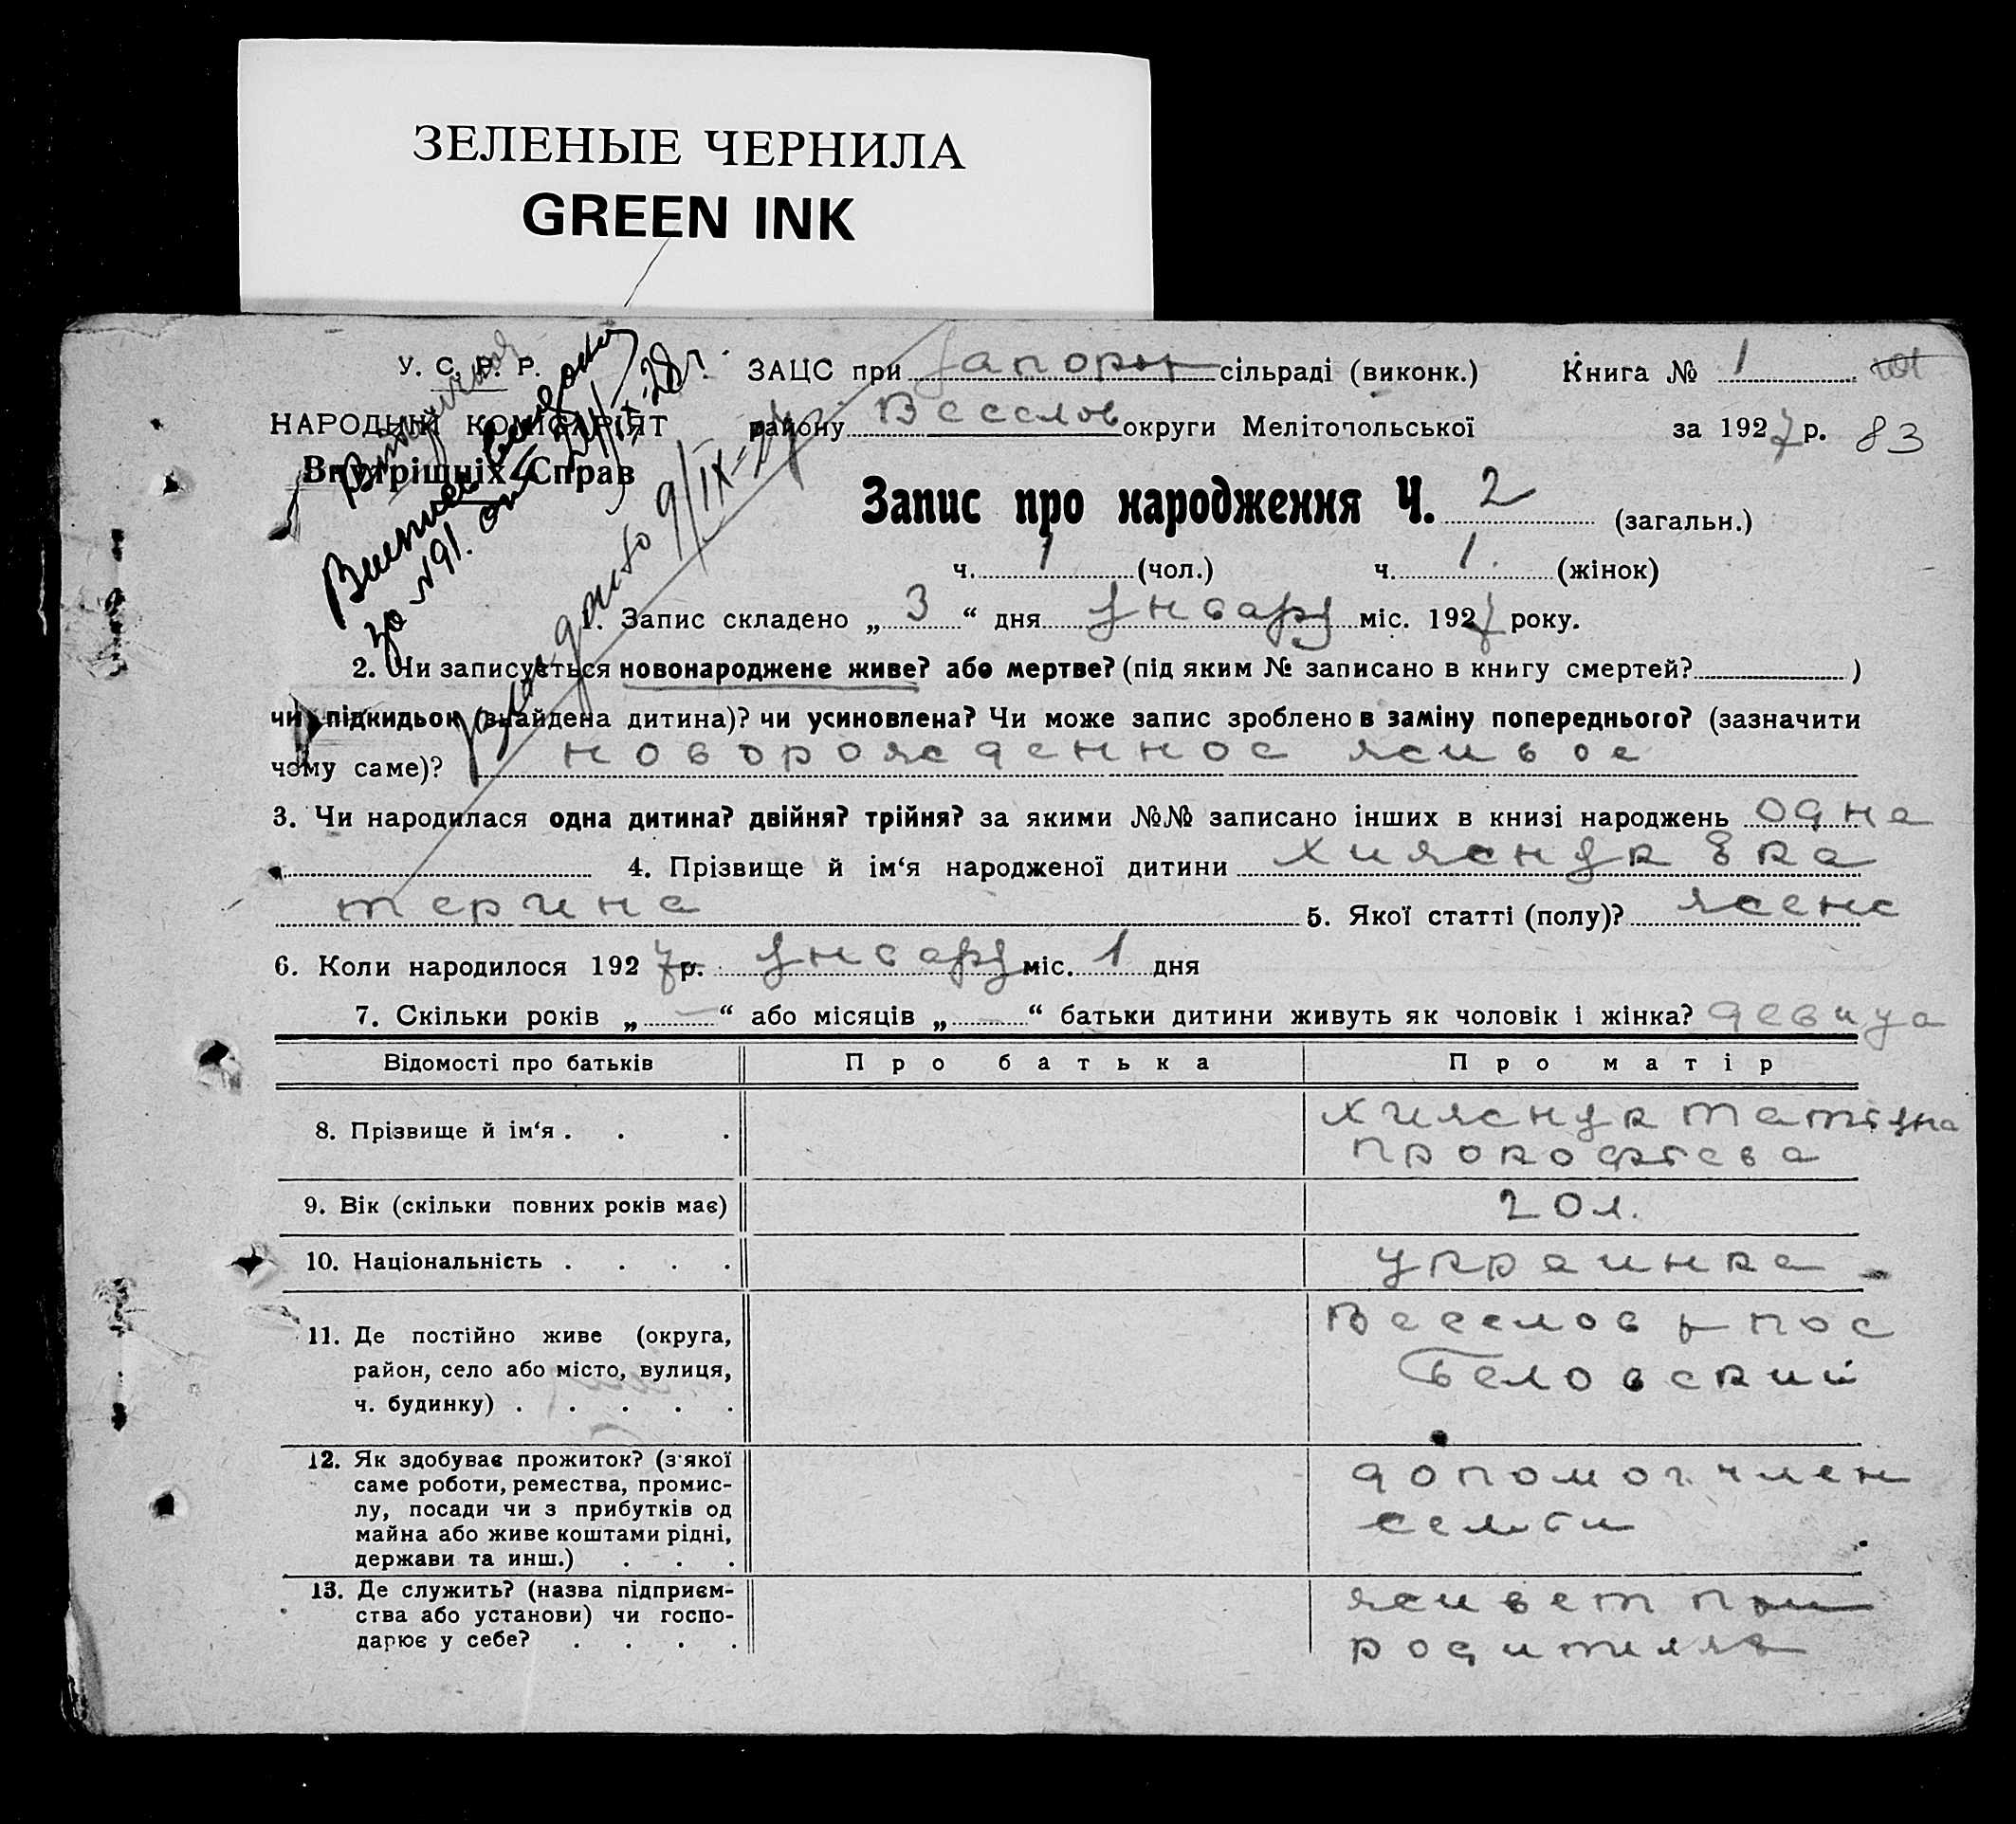 ЗЕЛЕНЫЕ ЧЕРНИЛА
GREEN INK
У. С. Р. Р.
НАРОДНІЙ КОМІСАРІЯТ
Внутрішніх Справ
за №91. от
9/IX-
ЗАЦС при Запорж сільраді (виконк.) Книга № 1
району Веселов округи Мелітопольської за 1927 р. 83
Запис про народження Ч. 2 (загальн.)
ч. 1 (чол.) ч. 1. (жінок)
1. Запис складено „ 3 “ дня января міс. 1927 року.
2. Чи записується новонароджене живе? або мертве? (під яким № записано в книгу смертей? )
чи підкидьок (знайдена дитина)? чи усиновлена? Чи може запис зроблено в заміну попереднього? (зазначити
чому саме)? новорожденное живое
3. Чи народилася одна дитина? двійня? трійня? за якими №№ записано інших в книзі народжень одна
4. Прізвище й ім‘я народженої дитини Хижняк Ека
терина 5. Якої статті (полу)? жена
6. Коли народилося 1927 р. января міс. 1 дня
7. Скільки років „ — “ або місяців „ “ батьки дитини живуть як чоловік і жінка? девица
Відомості про батьків Про батька Про матір
8. Прізвище й ім‘я . . . Хижняк Татяна
Прокофьева
9. Вік (скільки повних років має) 20 л.
10. Національність . . . . украинка
11. Де постійно живе (округа, район, село або місто, вулиця, ч. будинку) . . . . . Веселов р пос
Беловский
12. Як здобуває прожиток? (з’якої саме роботи, ремества, промис-
лу, посади чи з прибутків од
майна або живе коштами рідні,
держави та инш.) . . . допомог. член
семьи
13. Де служить? (назва підприєм-
ства або установи) чи госпо-
дарює у себе? . . . . живет при
родителях